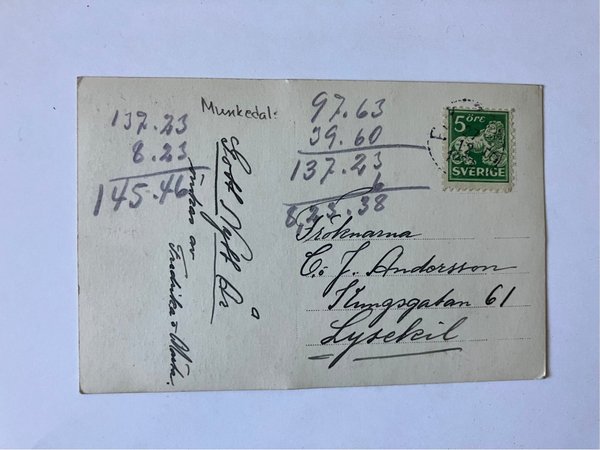 Munkedal:
137.23
8.23
145.46
97.63
39.60
137.23
6
8,23.38
5 ÖRE
SVERIGE
Gott Nytt År
önskas av
Fredrika & Märta.
Fröknarna
C. J. Andersson
Kungsgatan 61
Lysekil